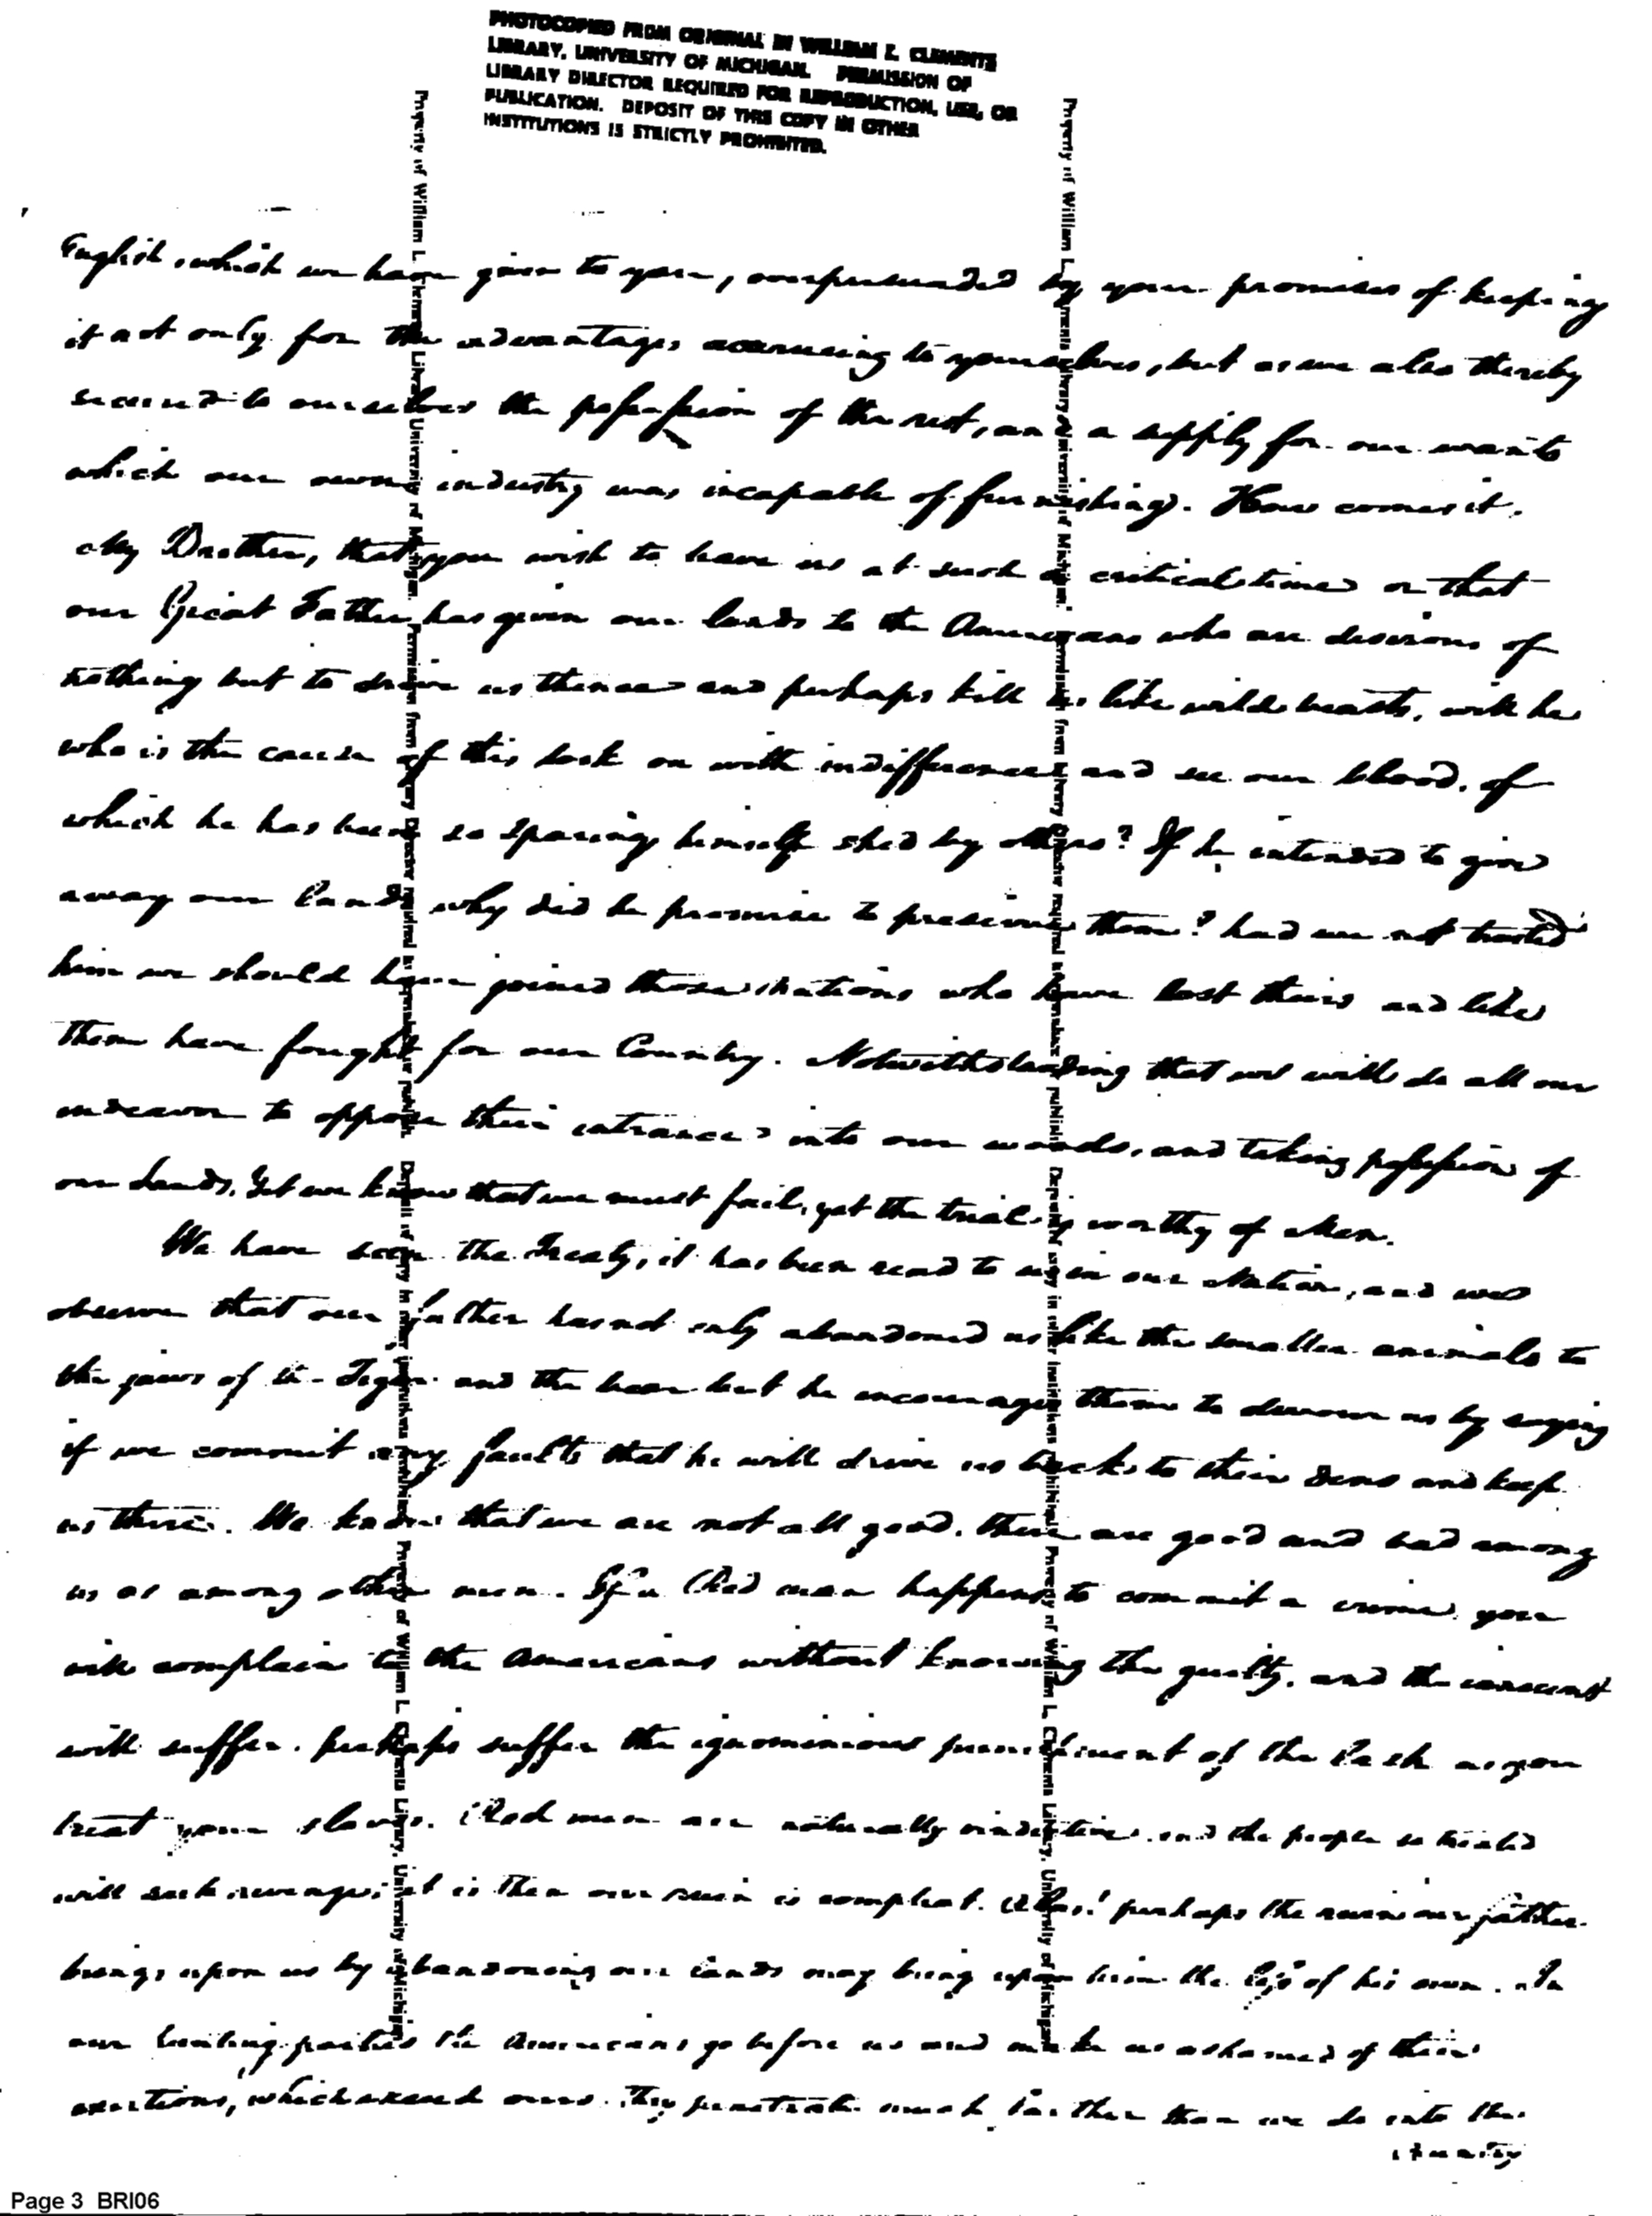 PHOTOCOPIED FROM ORIGINAL IN WILLIAM L. CLEMENTS
LIBRARY, UNIVERSITY OF MICHIGAN. PERMISSION OF
LIBRARY DIRECTOR REQUIRED FOR REPRODUCTION, USE, OR
PUBLICATION. DEPOSIT OF THIS COPY IN OTHER
INSTITUTIONS IS STRICTLY PROHIBITED.
English, which we have given to you, overpersuaded by your promises of keeping
it not only for the advantages accrueing to yourselves, but as we also thereby
secured to ourselves the possession of the rest, and a supply for our wants
which our own industry was incapable of furnishing. How comes it,
My Brother, that you wish to leave us at such a critical time or that
our Great Father has given our lands to the Americans who are desirous of
nothing but to drive us thence and perhaps kill us like wild beasts, will he
who is the cause of this look on with indifference and see our blood, of
which he has been so sparing himself shed by others? If he intended to give
away our lands why did he promise to preserve them? had we not trusted
him we should have joined those nations who have lost theirs and like
them have fought for our Country. Notwithstanding that we will do all our
endeavor to oppose their entrance into our woods, and taking possession of
our lands, Yet we know that we must fail, yet the trial is worthy of Men.
We have seen the Treaty, it has been read to us in our Nation, and we
observe that our father has not only abandoned us like the smaller animals to
the jaws of the Tyger and the bear but he encourages them to devour us by saying
if we commit any faults that he will drive us back to their dens and keep
us there. We know that we are not all good, there are good and bad among
us as among other men. If a Red man happens to commit a crime, you
will complain to the Americans without knowing the guilty, and the innocent
will suffer. perhaps suffer the ignominious punishment of the lash as you
treat your slaves. Red men are naturally vindictive and the people so treated
will seek revenge, it is then our ruin is compleat. Alas! perhaps the ruin our father
brings upon us by abandoning our lands may bring upon him the loss of his own. In
our hunting parties the Americans go before us and make us ashamed of their
exertions, which exceed ours. They penetrate much farther than we do into the
country
Property of William L. Clements Library, University of Michigan. Permission from Library Director required to reproduce or publish. Deposit of copy in other institutions prohibited. Property of William L. Clements Library, University of Michigan
Property of William L. Clements Library, University of Michigan. Permission from Library Director required to reproduce or publish. Deposit of copy in other institutions prohibited. Property of William L. Clements Library, University of Michigan
Page 3 BRI06